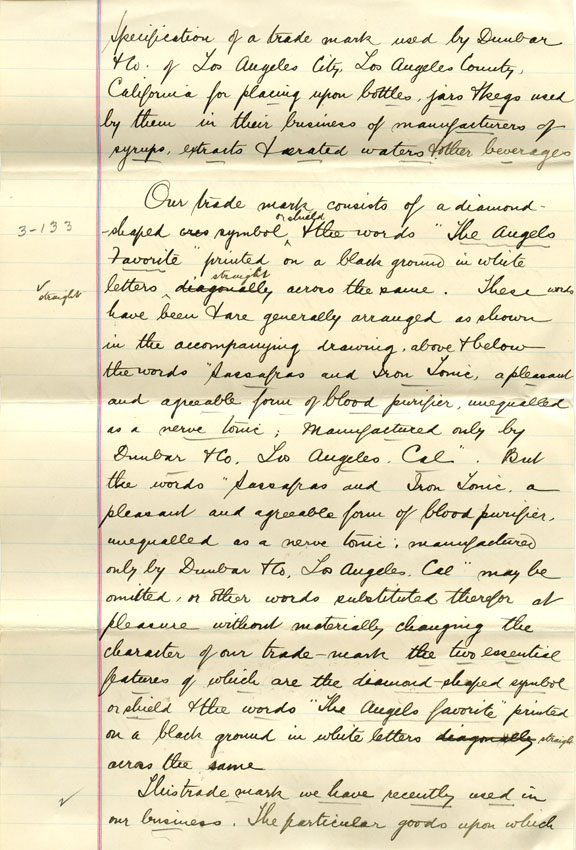 Specification of a trade mark used by Dunbar
& Co. of Los Angeles City, Los Angeles County,
California for placing upon bottles, jars & kegs used
by them in their business of manufacturers of
syrups, extracts & ærated waters & other beverages
Our trade mark consists of a diamond-
or shield
3-133
shaped symbol & the words "The Angels
Favorite" printed on a black ground in white
straight
letters diagonally across the same. These words
straight
have been & are generally arranged as shown
in the accompanying drawing, above & below
the words "Sassafras and Iron Tonic, a pleasant
and agreeable form of blood purifier, unequalled
as a nerve tonic; Manufactured only by
Dunbar & Co, Los Angeles, Cal". But
the words "Sassafras and Iron Tonic, a
pleasant and agreeable form of blood purifier,
unequalled as a nerve tonic; manufactured
only by Dunbar & Co, Los Angeles, Cal" may be
omitted, or other words substituted therefor at
pleasure without materially changing the
character of our trade-mark the two essential
features of which are the diamond-shaped symbol
or shield & the words "The Angels favorite" printed
on a black ground in white letters diagonally straight
across the same
This trade mark we have recently used in
our business. The particular goods upon which